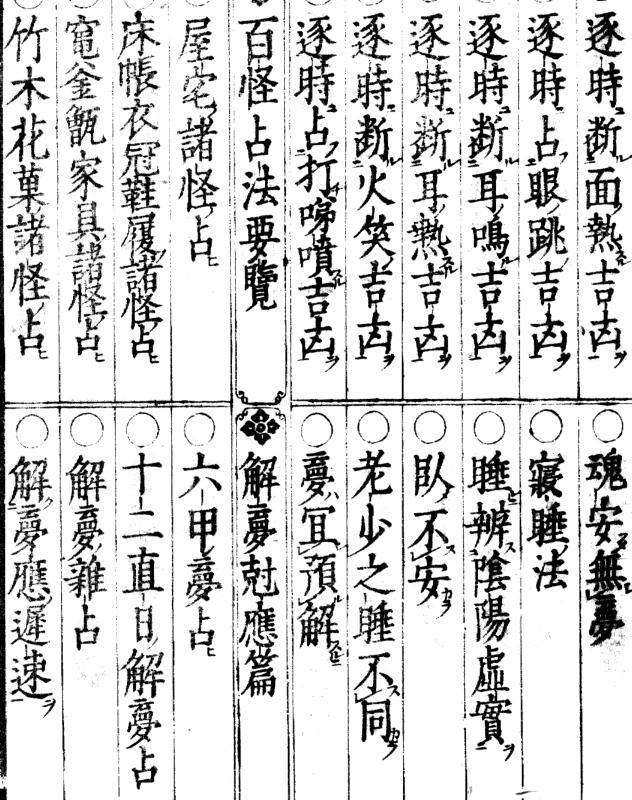 逐時断面熱吉凶
逐時占眼跳吉凶
逐時断耳鳴吉凶
逐時断耳熱吉凶
逐時断火笑吉凶
逐時占打嚔噴吉凶
百怪占法要覽
屋宅諸怪占
床帳衣冠鞋履諸怪占
竃釜甑家具諸怪占
竹木花菓諸怪占
魂安無夢
寢睡法
睡辨陰陽虛實
臥不安
老少之睡不同
夢冝預解
解夢尅應篇
六甲夢占
十二直日解夢占
解夢雜占
解夢應遲速